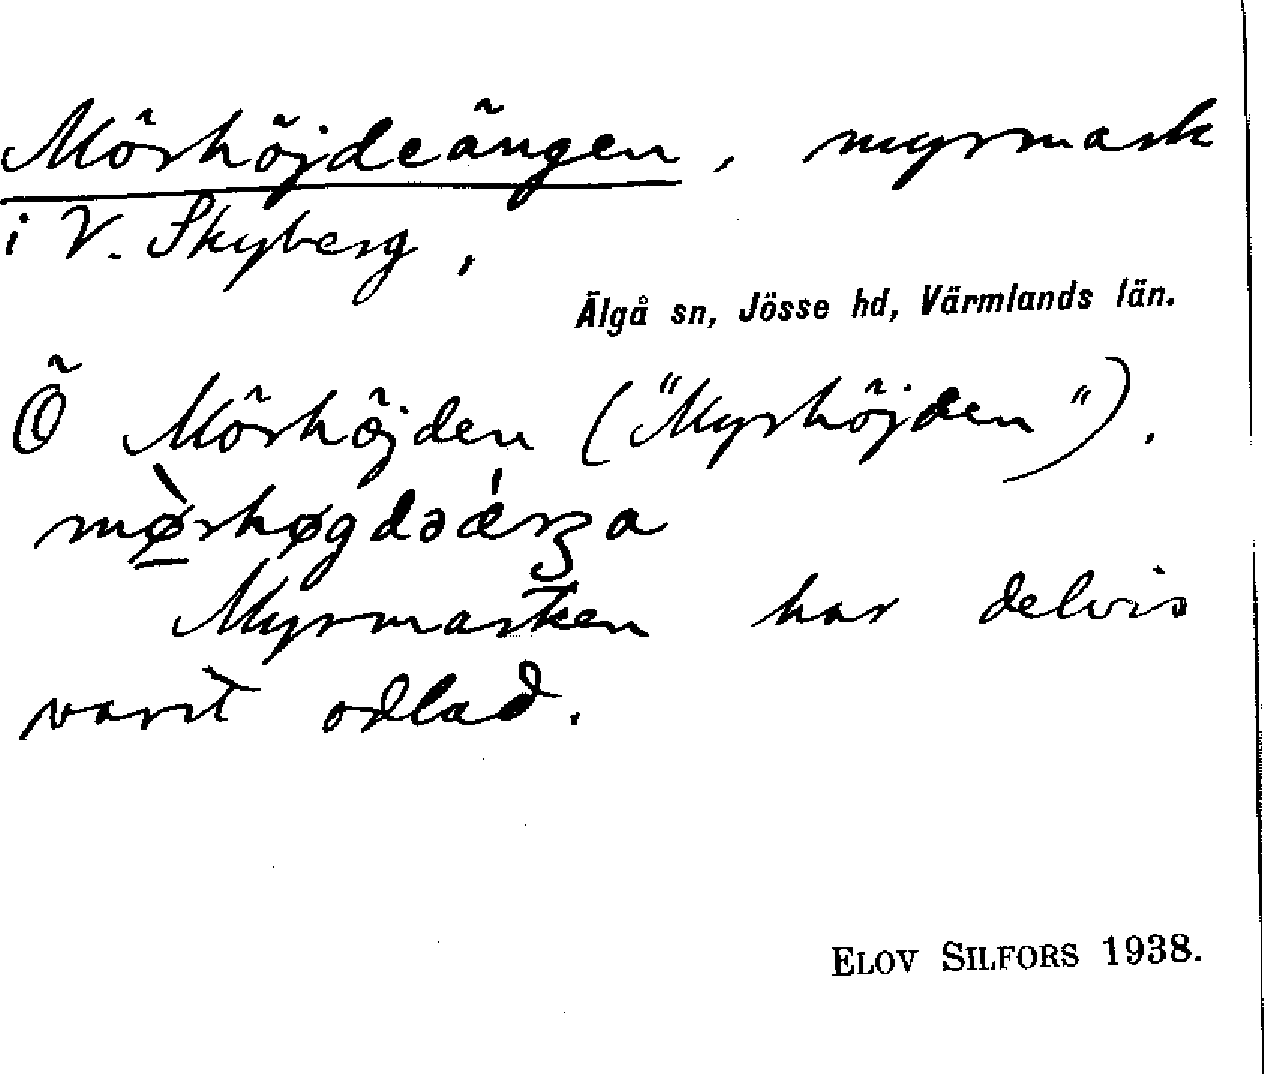 Mörhöjdeängen, myrmark
i V. Skyberg,
Älgå sn, Jösse hd, Värmlands län.
Ö Mörhöjden ("Myrhöjden").
Myrmarken har delvis
varit odlad.
ELOV SILFORS 1938.